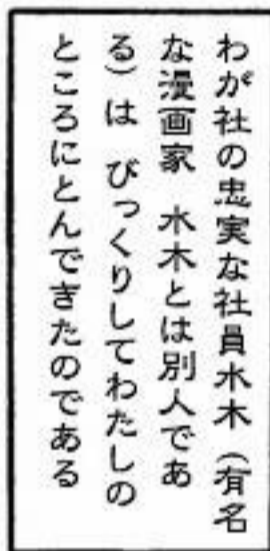 わが社の忠実な社員水木（有名
な漫画家　水木とは別人であ
る）は　びっくりしてわたしの
ところにとんできたのである